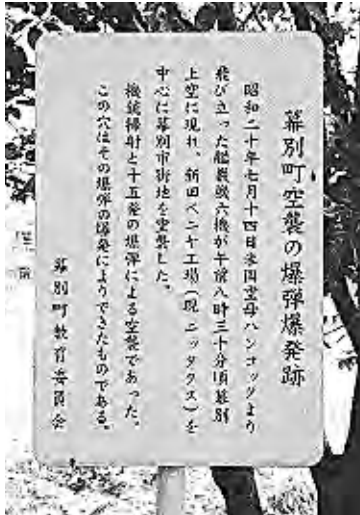 幕別町空襲の爆弾爆発跡
昭和二十年七月十四日米国空母ハンコックより
飛び立った艦載機六機が午前八時三十分頃幕別
上空に現れ、新田ベニヤ工場(現ニッタクス)を
中心に幕別市街地を空襲した。
機銃掃射と十五発の爆弾による空襲であった。
この穴はその爆弾の爆発によりできたものである。
幕別町教育委員会